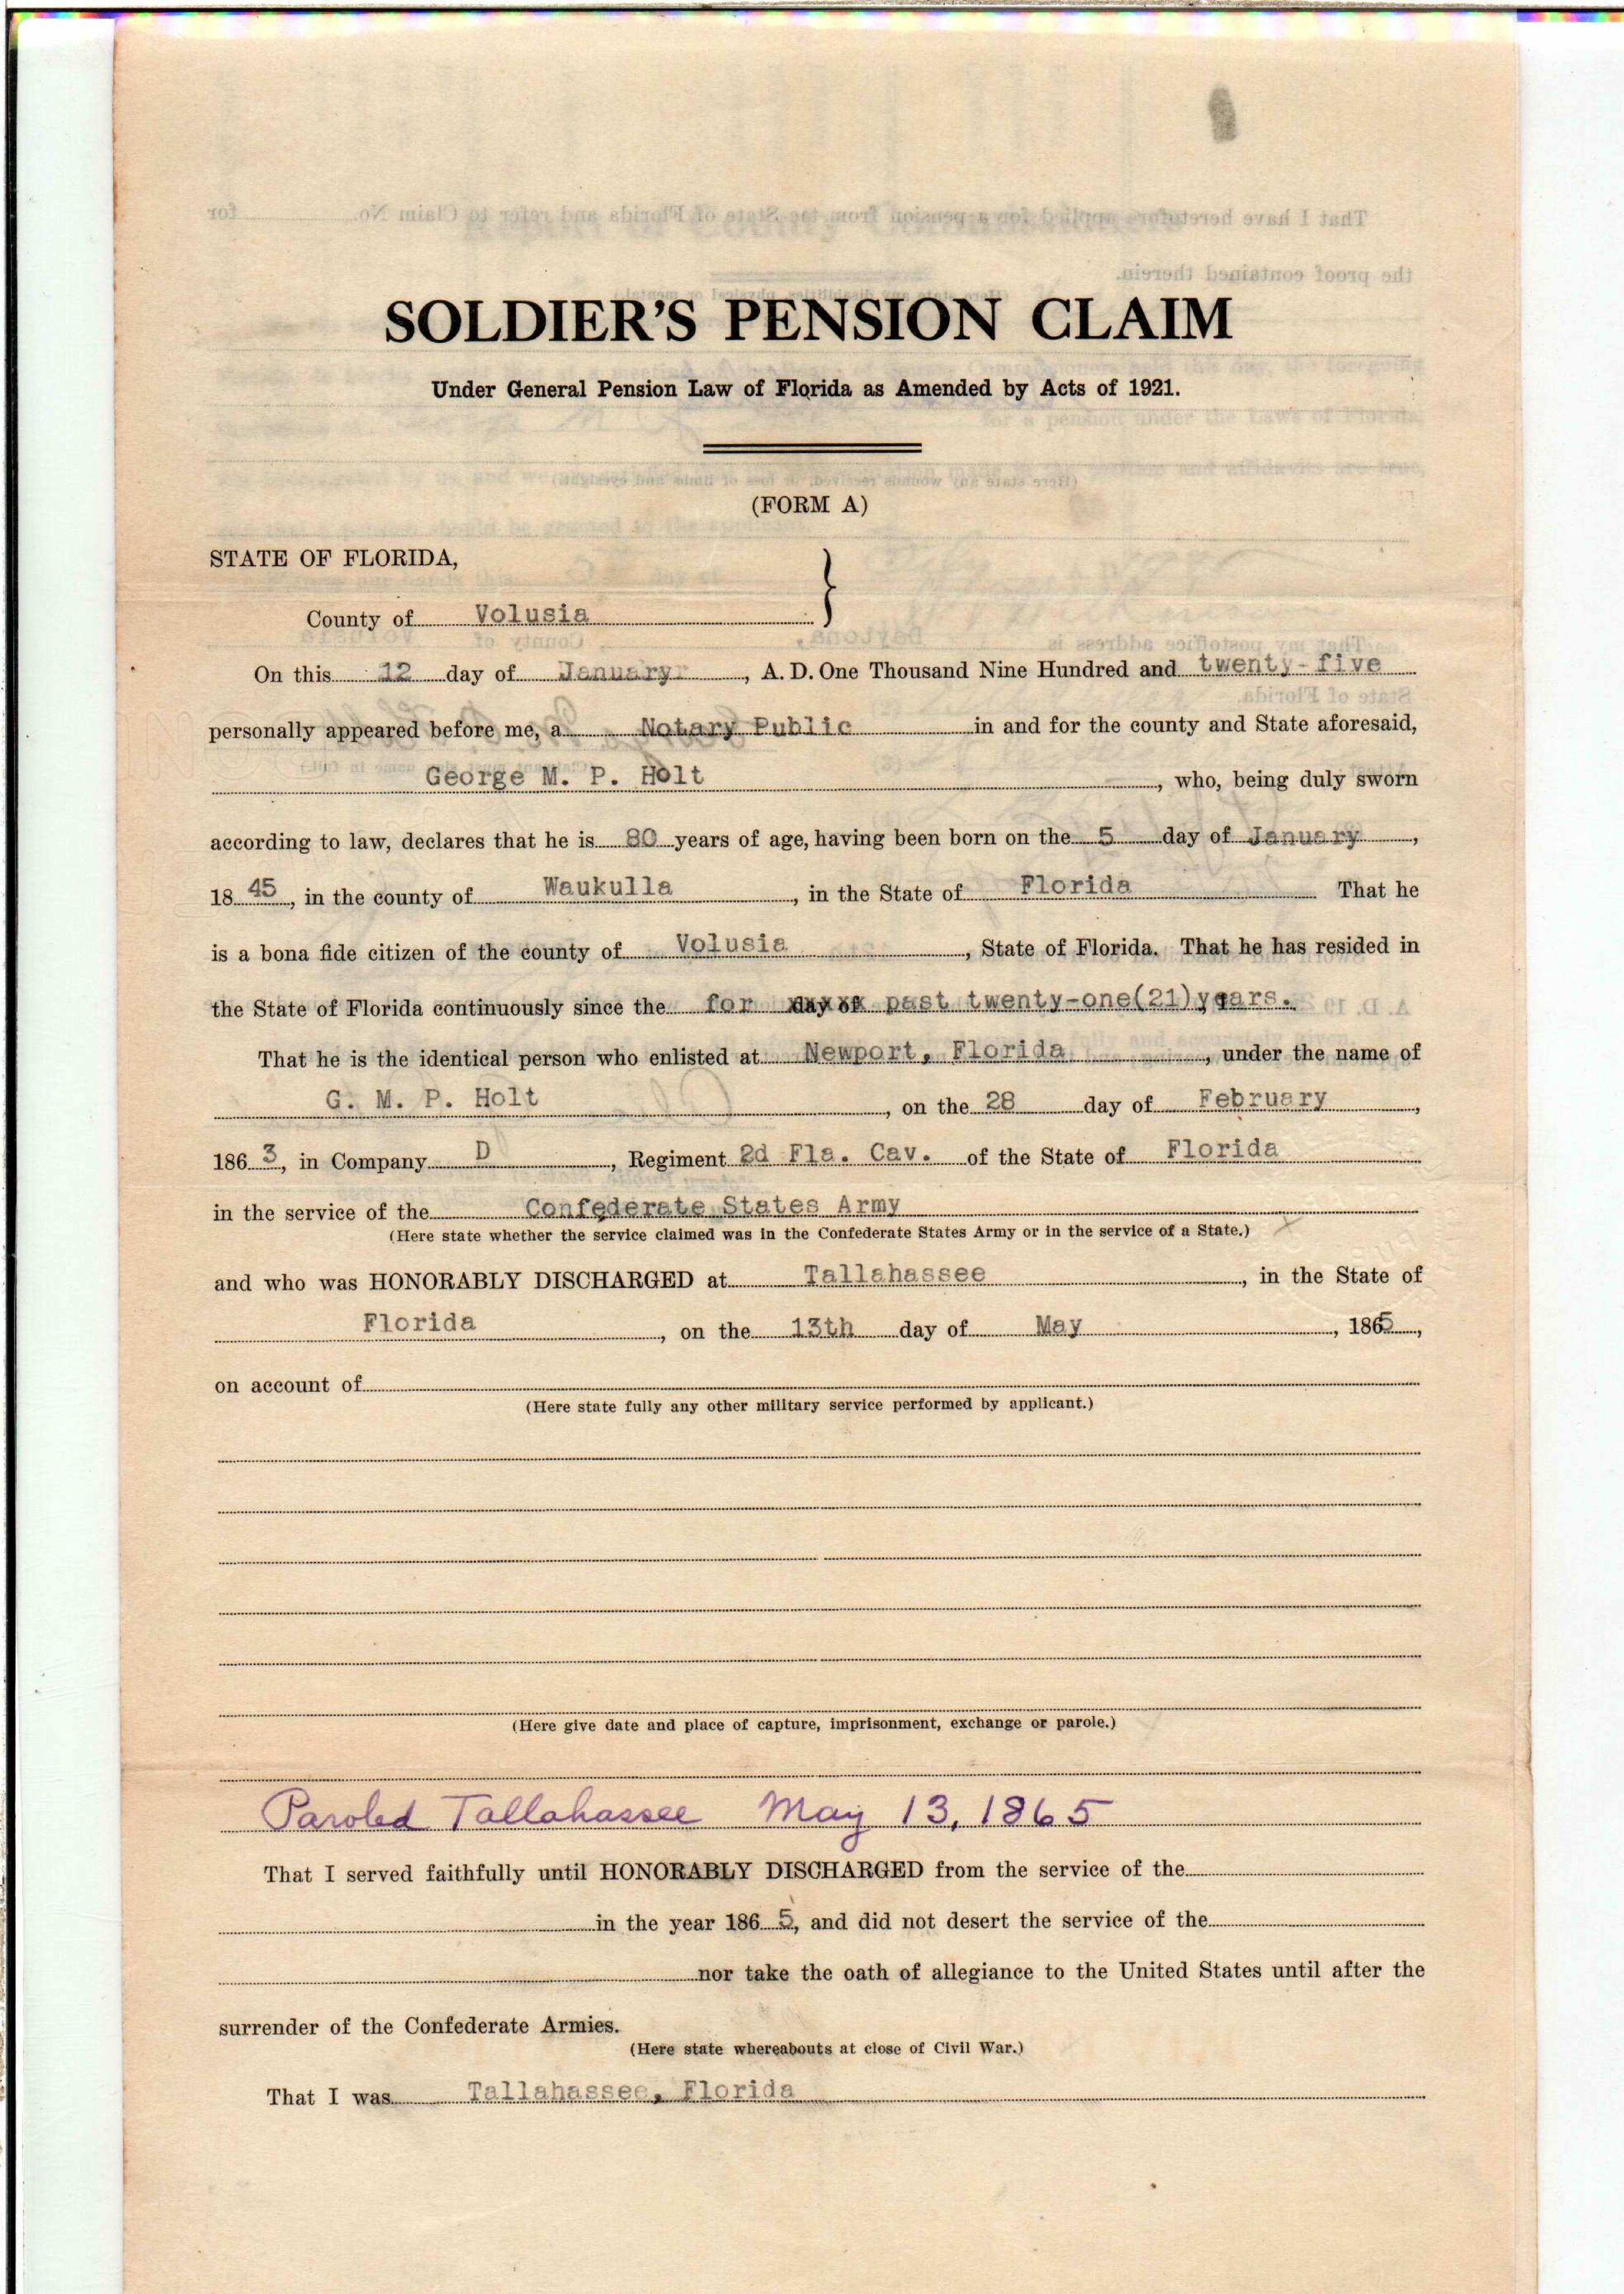 SOLDIER'S PENSION CLAIM
Under General Pension Law of Florida as Amended by Acts of 1921.
(FORM A)
STATE OF FLORIDA,
County of Volusia
On this 12 day of January, A. D. One Thousand Nine Hundred and twenty-five
personally appeared before me, a Notary Public in and for the county and State aforesaid,
George M. P. Holt, who, being duly sworn
according to law, declares that he is 80 years of age, having been born on the 5 day of January,
1845, in the county of Waukulla, in the State of Florida That he
is a bona fide citizen of the county of Volusia, State of Florida. That he has resided in
the State of Florida continuously since the for past twenty-one(21)years.
That he is the identical person who enlisted at Newport, Florida, under the name of
G. M. P. Holt, on the 28 day of February,
1863, in Company D, Regiment 2d Fla. Cav. of the State of Florida
in the service of the Confederate States Army
(Here state whether the service claimed was in the Confederate States Army or in the service of a State.)
and who was HONORABLY DISCHARGED at Tallahassee, in the State of
Florida, on the 13th day of May, 1865,
on account of
(Here state fully any other military service performed by applicant.)
(Here give date and place of capture, imprisonment, exchange or parole.)
Paroled Tallahassee May 13, 1865
That I served faithfully until HONORABLY DISCHARGED from the service of the
in the year 1865, and did not desert the service of the
nor take the oath of allegiance to the United States until after the
surrender of the Confederate Armies.
(Here state whereabouts at close of Civil War.)
That I was Tallahassee, Florida